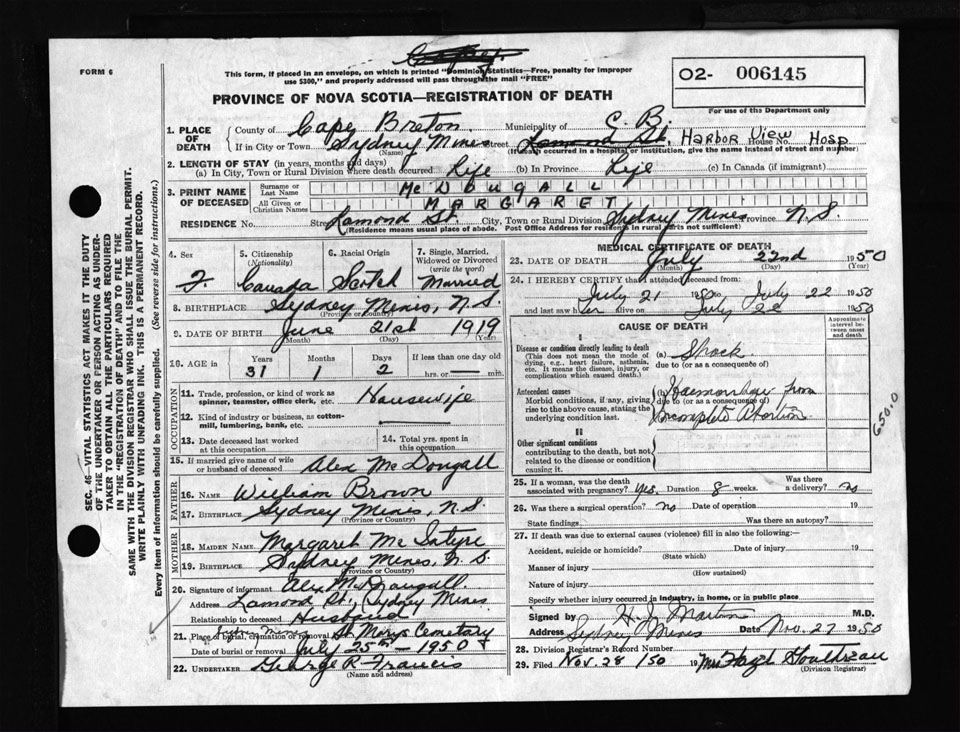 FORM 6
This form, if placed in an envelope, on which is printed "Dominion Statistics—Free, penalty for improper
use $300," and properly addressed will pass through the mail "FREE"
02- 006145
For use of the Department only
PROVINCE OF NOVA SCOTIA—REGISTRATION OF DEATH
1. PLACE OF DEATH
County of Cape Breton Municipality of C. B.
If in City or Town Sydney Mines (Name) Street Lamond St. Harbor View House No. Hosp
(If death occurred in a hospital or institution, give the name instead of street and number)
2. LENGTH OF STAY (in years, months and days)
(a) In City, Town or Rural Division where death occurred Life (b) In Province Life (c) In Canada (if immigrant)
3. PRINT NAME OF DECEASED
Surname or Last Name McDOUGALL
All Given or Christian Names MARGARET
RESIDENCE No. Street Lamond St. City, Town or Rural Division Sydney Mines Province N.S.
(Residence means usual place of abode. Post Office Address for residents in rural parts not sufficient)
4. Sex F.
5. Citizenship (Nationality) Canada
6. Racial Origin Scotch
7. Single, Married, Widowed or Divorced (write the word) Married
8. BIRTHPLACE Sydney Mines, N.S.
(Province or Country)
9. DATE OF BIRTH June 21st 1919
(Month) (Day) (Year)
10. AGE in Years 31 Months 1 Days 2 If less than one day old hrs. or min.
OCCUPATION
11. Trade, profession, or kind of work as spinner, teamster, office clerk, etc. Housewife
12. Kind of industry or business, as cotton-mill, lumbering, bank, etc.
13. Date deceased last worked at this occupation
14. Total yrs. spent in this occupation
15. If married give name of wife or husband of deceased Alex McDougall
FATHER
16. NAME William Brown
17. BIRTHPLACE Sydney Mines, N.S.
(Province or Country)
MOTHER
18. MAIDEN NAME Margaret McIntyre
19. BIRTHPLACE Sydney Mines, N.S
(Province or Country)
20. Signature of informant Alex McDougall.
Address Lamond St., Sydney Mines
Relationship to deceased Husband
21. Place of burial, cremation or removal Sydney Mines St. Marys Cemetary
Date of burial or removal July 25th - 1950
22. UNDERTAKER George R Francis
(Name and address)
MEDICAL CERTIFICATE OF DEATH
23. DATE OF DEATH July 22nd 1950
(Month) (Day) (Year)
24. I HEREBY CERTIFY that I attended deceased from:
July 21 1950 to July 22 1950
and last saw her alive on July 22 1950
CAUSE OF DEATH
Approximate interval between onset and death
I
Disease or condition directly leading to death
(This does not mean the mode of dying, e.g., heart failure, asthenia, etc. It means the disease, injury, or complication which caused death.)
(a) Shock
due to (or as a consequence of)
Antecedent causes
Morbid conditions, if any, giving rise to the above cause, stating the underlying condition last.
(b) Haemorrhage from
due to (or as a consequence of)
(c) Incomplete Abortion
650.0
II
Other significant conditions
contributing to the death, but not related to the disease or condition causing it.
25. If a woman, was the death associated with pregnancy? Yes. Duration 8 weeks. Was there a delivery? no
26. Was there a surgical operation? no Date of operation 19
State findings Was there an autopsy?
27. If death was due to external causes (violence) fill in also the following:
Accident, suicide or homicide? Date of injury 19
(State which)
Manner of injury
(How sustained)
Nature of injury
Specify whether injury occurred in industry, in home, or in public place
Signed by M.D.
Address Sydney Mines Date Nov. 27 1950
28. Division Registrar's Record Number
29. Filed Nov. 28/50 19
(Division Registrar)
SEC. 46—VITAL STATISTICS ACT MAKES IT THE DUTY
OF THE UNDERTAKER OR PERSON ACTING AS UNDER-
TAKER TO OBTAIN ALL THE PARTICULARS REQUIRED
IN THE "REGISTRATION OF DEATH" AND TO FILE THE
SAME WITH THE DIVISION REGISTRAR WHO SHALL ISSUE THE BURIAL PERMIT.
WRITE PLAINLY WITH UNFADING INK. THIS IS A PERMANENT RECORD.
Every item of information should be carefully supplied. (See reverse side for instructions.)